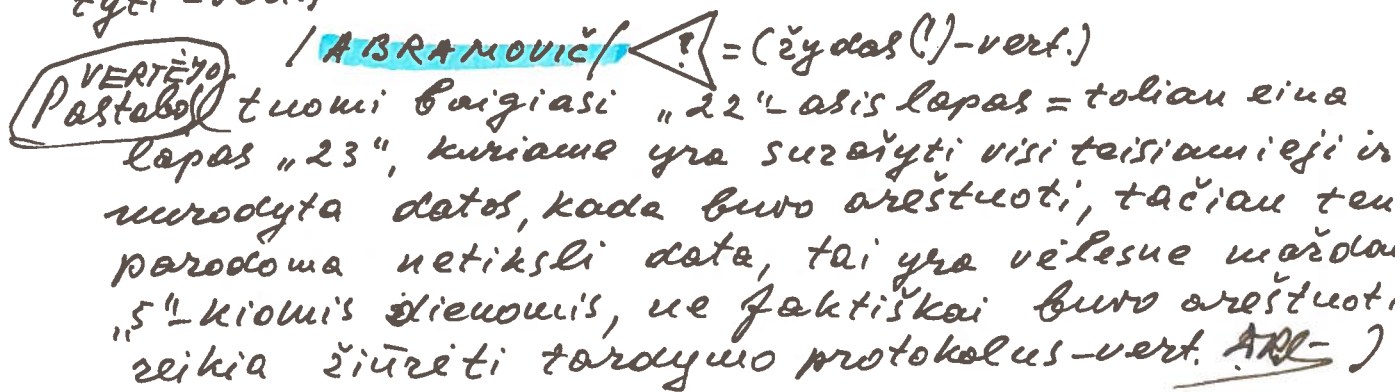 /ABRAMOVIČ/ ? = (žydas(!)-vert.)
VERTĖJO
Pastabos tuomi baigiasi „22“-asis lapas = toliau eina
lapas „23“, kuriame yra surašyti visi teisiamieji ir
nurodyta datos, kada buvo areštuoti, tačiau ten
parodoma netiksli data, tai yra vėlesne maždau
„5“-kiomis dienomis, ne faktiškai buvo areštuoti
reikia žiūrėti tardymo protokolus-vert. )